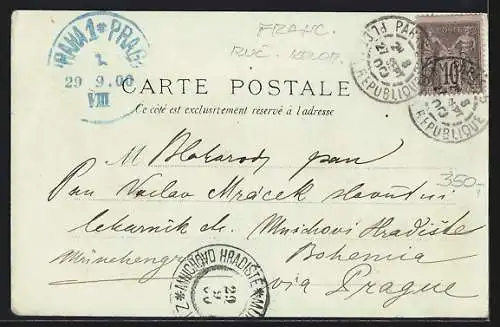 PRAHA 1 * PRAG
1.
29 9.00
VIII
FRANC.
PARIS
RÉPUBLIQUE
10
RÉPUBLIQUE
CARTE POSTALE
Ce côté est exclusivement réservé à l'adresse
350,-
M Blahorodý pan
Pan Vaclav Mráček slovutní
lekarnik ch. Mnichovi Hradiště
Bohemia
via Prague
MNICHOVO HRADIŠTĚ
29
9
00